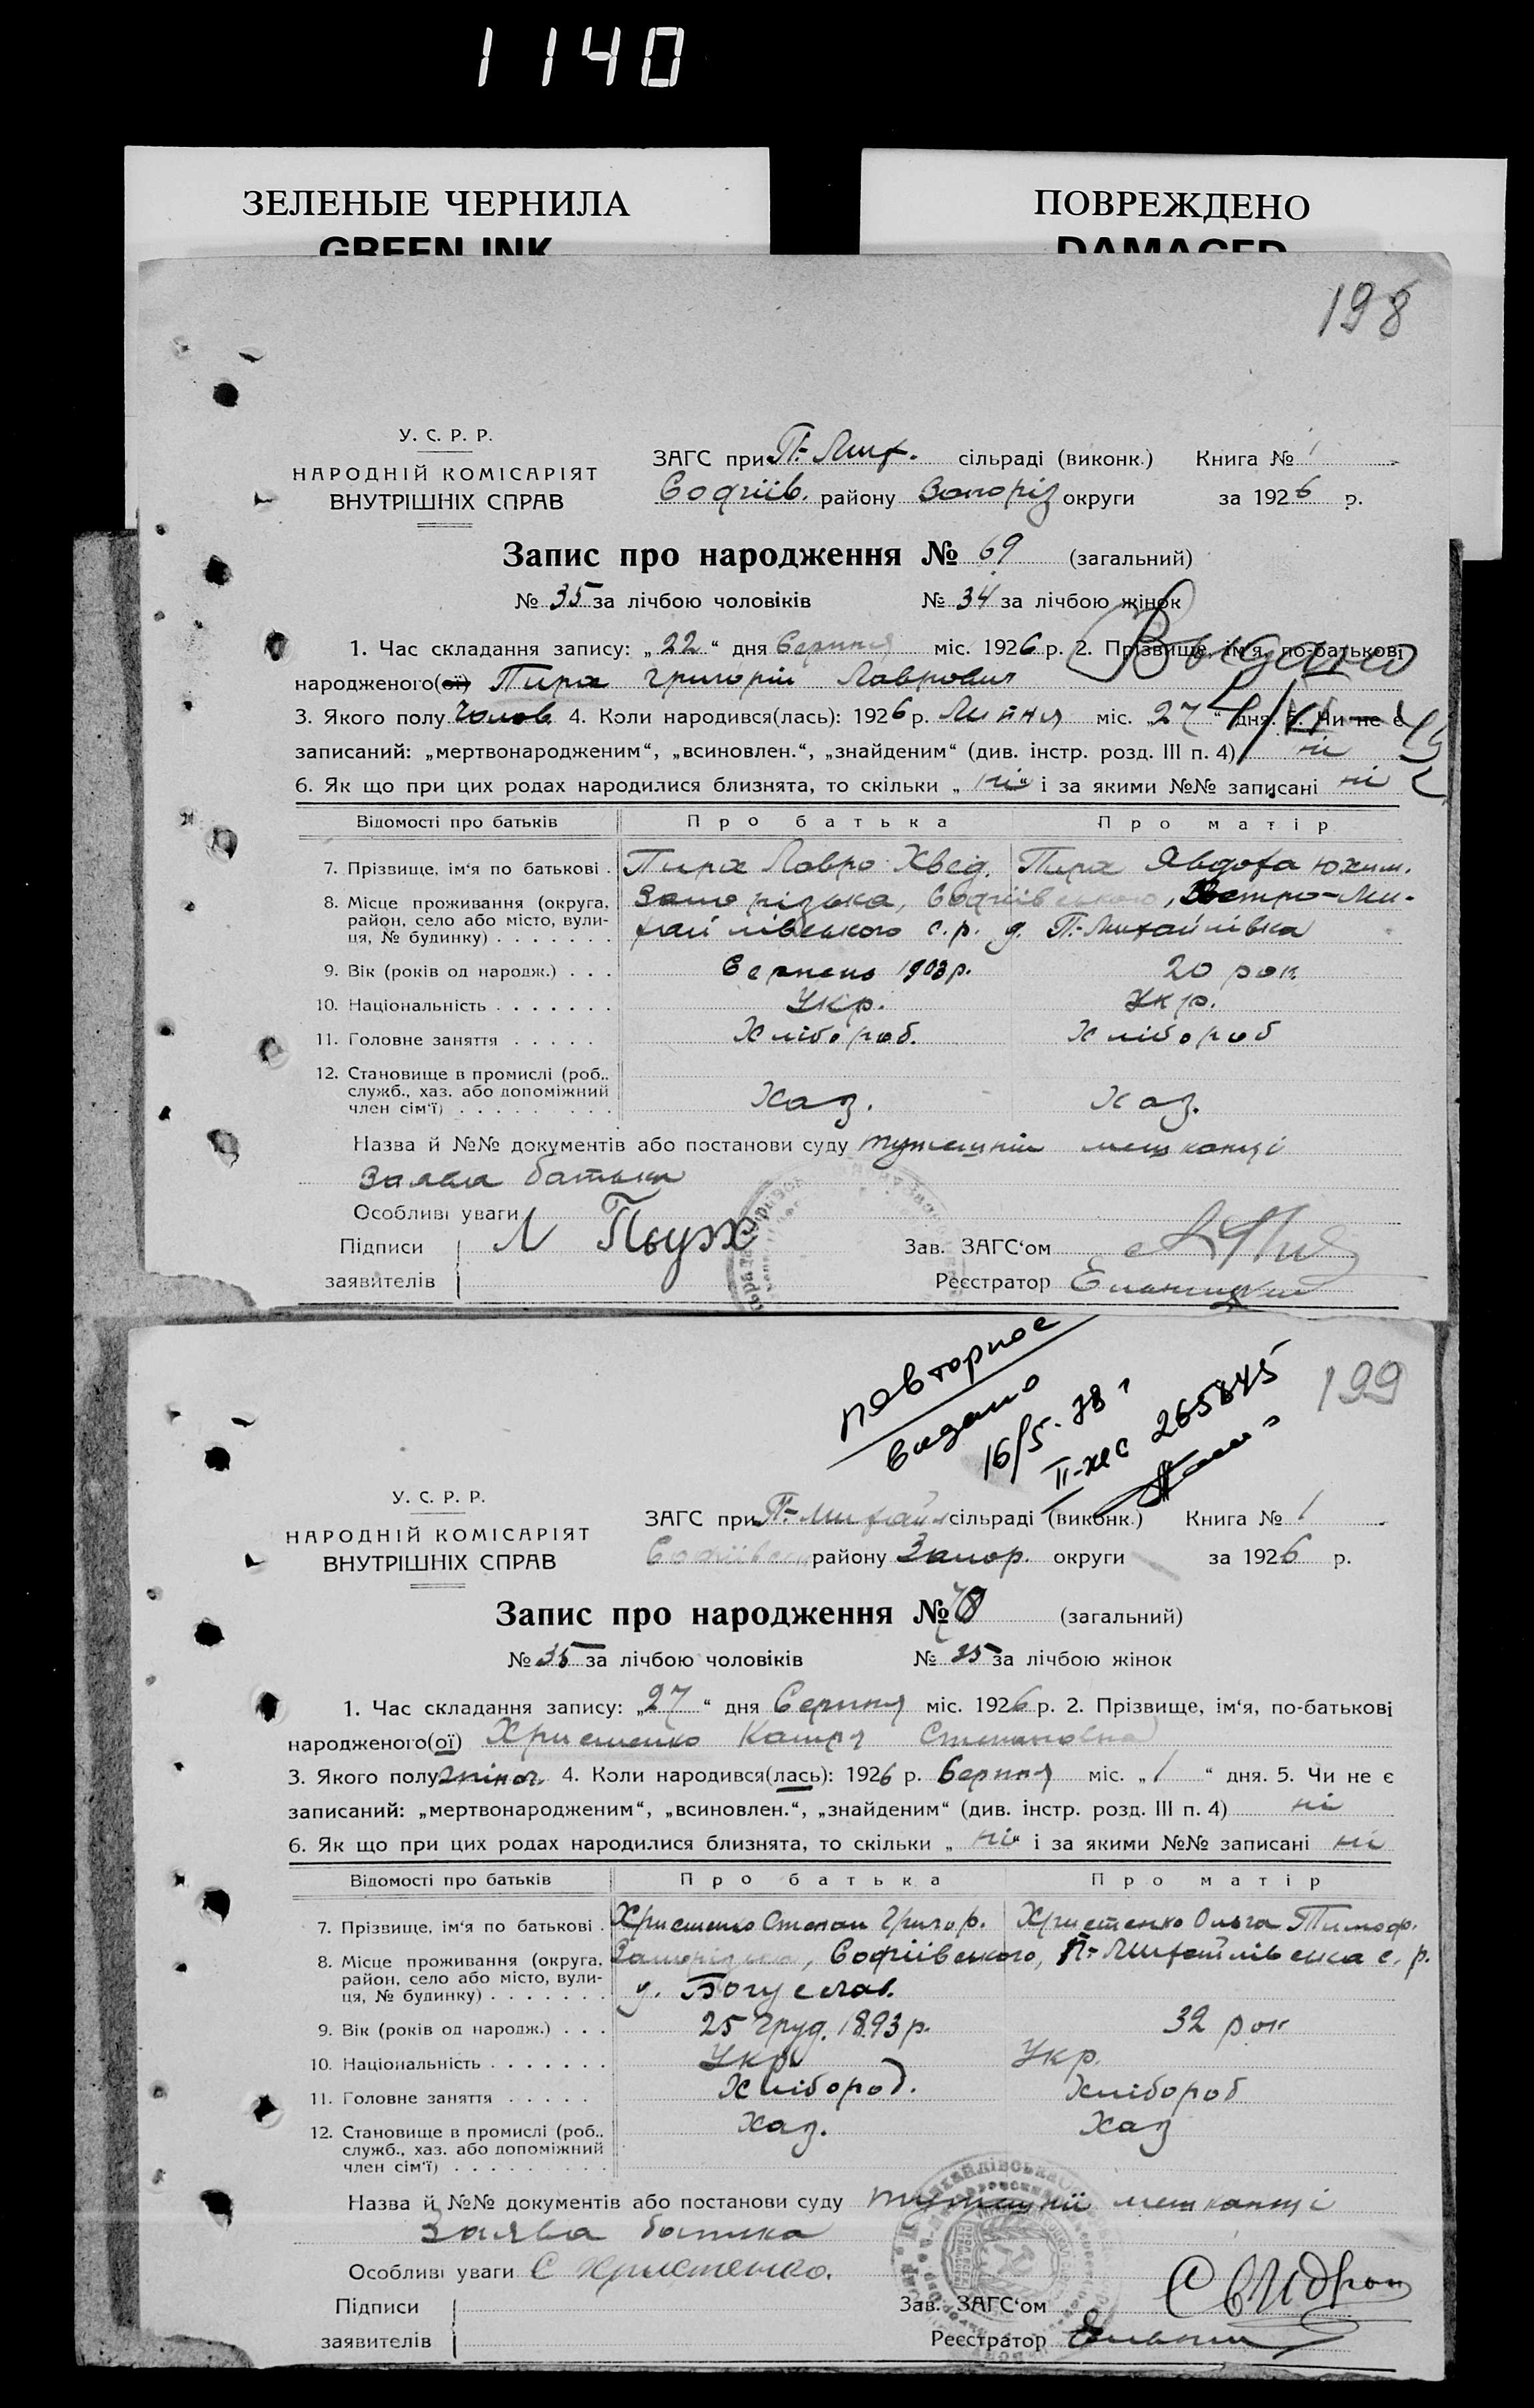 1140
ЗЕЛЕНЫЕ ЧЕРНИЛА
GREEN INK
ПОВРЕЖДЕНО
DAMAGED
198
У. С. Р. Р.
НАРОДНІЙ КОМІСАРІЯТ
ВНУТРІШНІХ СПРАВ
ЗАГС при П.-Мих. сільраді (виконк.) Книга № 1
Софіїв. району Запоріз округи за 1926 р.
Запис про народження № 69 (загальний)
№ 35 за лічбою чоловіків № 34 за лічбою жінок
1. Час складання запису: „22“ дня Серпня міс. 1926 р. 2. Прізвище, ім'я, по-батькові
Выдано
народженого(ої) Пира Григорій Лаврович
3. Якого полу Чолов. 4. Коли народився(лась): 1926 р. Липня міс. „27“ дня. 5. Чи не є
записаний: „мертвонародженим“, „всиновлен.“, „знайденим“ (див. інстр. розд. III п. 4) ні
6. Як що при цих родах народилися близнята, то скільки „ні“ і за якими №№ записані ні
Відомості про батьків Про батька Про матір
7. Прізвище, ім'я по батькові . Пира Лавро Хвед. Пира Явдоха Юхим.
8. Місце проживання (округа, район, село або місто, вулиця, № будинку) . . . . . . . Запорізька, Софіївського, Петро-Ми-
хайлівського с.р. д. П.-Михайлівка
9. Вік (років од народж.) . . . Серпень 1903 р. 20 рок
10. Національність . . . . . . . Укр. Укр.
11. Головне заняття . . . . . Хлібороб. Хлібороб
12. Становище в промислі (роб., служб., хаз. або допоміжний член сім'ї) . . . . . . . . . Хаз. Хаз.
Назва й №№ документів або постанови суду тутешній мешканці
Заява батька
Особливі уваги
Підписи
заявителів
Зав. ЗАГС'ом
Реєстратор
повторное
видано
16/5-78 г
II-ЖС 265845
199
У. С. Р. Р.
НАРОДНІЙ КОМІСАРІЯТ
ВНУТРІШНІХ СПРАВ
ЗАГС при П.-Михайл сільраді (виконк.) Книга № 1
Софіївськ району Запор. округи за 1926 р.
Запис про народження № 70 (загальний)
№ 35 за лічбою чоловіків № 35 за лічбою жінок
1. Час складання запису: „27“ дня Серпня міс. 1926 р. 2. Прізвище, ім'я, по-батькові
народженого(ої) Христенко Катря Степановна
3. Якого полу жіноч. 4. Коли народився(лась): 1926 р. Серпня міс. „1“ дня. 5. Чи не є
записаний: „мертвонародженим“, „всиновлен.“, „знайденим“ (див. інстр. розд. III п. 4) ні
6. Як що при цих родах народилися близнята, то скільки „ні“ і за якими №№ записані ні
Відомості про батьків Про батька Про матір
7. Прізвище, ім'я по батькові . Христенко Степан Григор. Христенко Ольга Тимоф.
8. Місце проживання (округа, район, село або місто, вулиця, № будинку) . . . . . . . Запорізька, Софіївського, П.-Михайлівська с. р.
д. Богуслав.
9. Вік (років од народж.) . . . 25 Груд. 1893 р. 32 рок
10. Національність . . . . . . . Укр. Укр.
11. Головне заняття . . . . . Хлібороб. Хлібороб
12. Становище в промислі (роб., служб., хаз. або допоміжний член сім'ї) . . . . . . . . . Хаз. Хаз
Назва й №№ документів або постанови суду тутешнії мешканці
Заява батька
Особливі уваги С Христенко.
Підписи
заявителів
Зав. ЗАГС'ом
Реєстратор